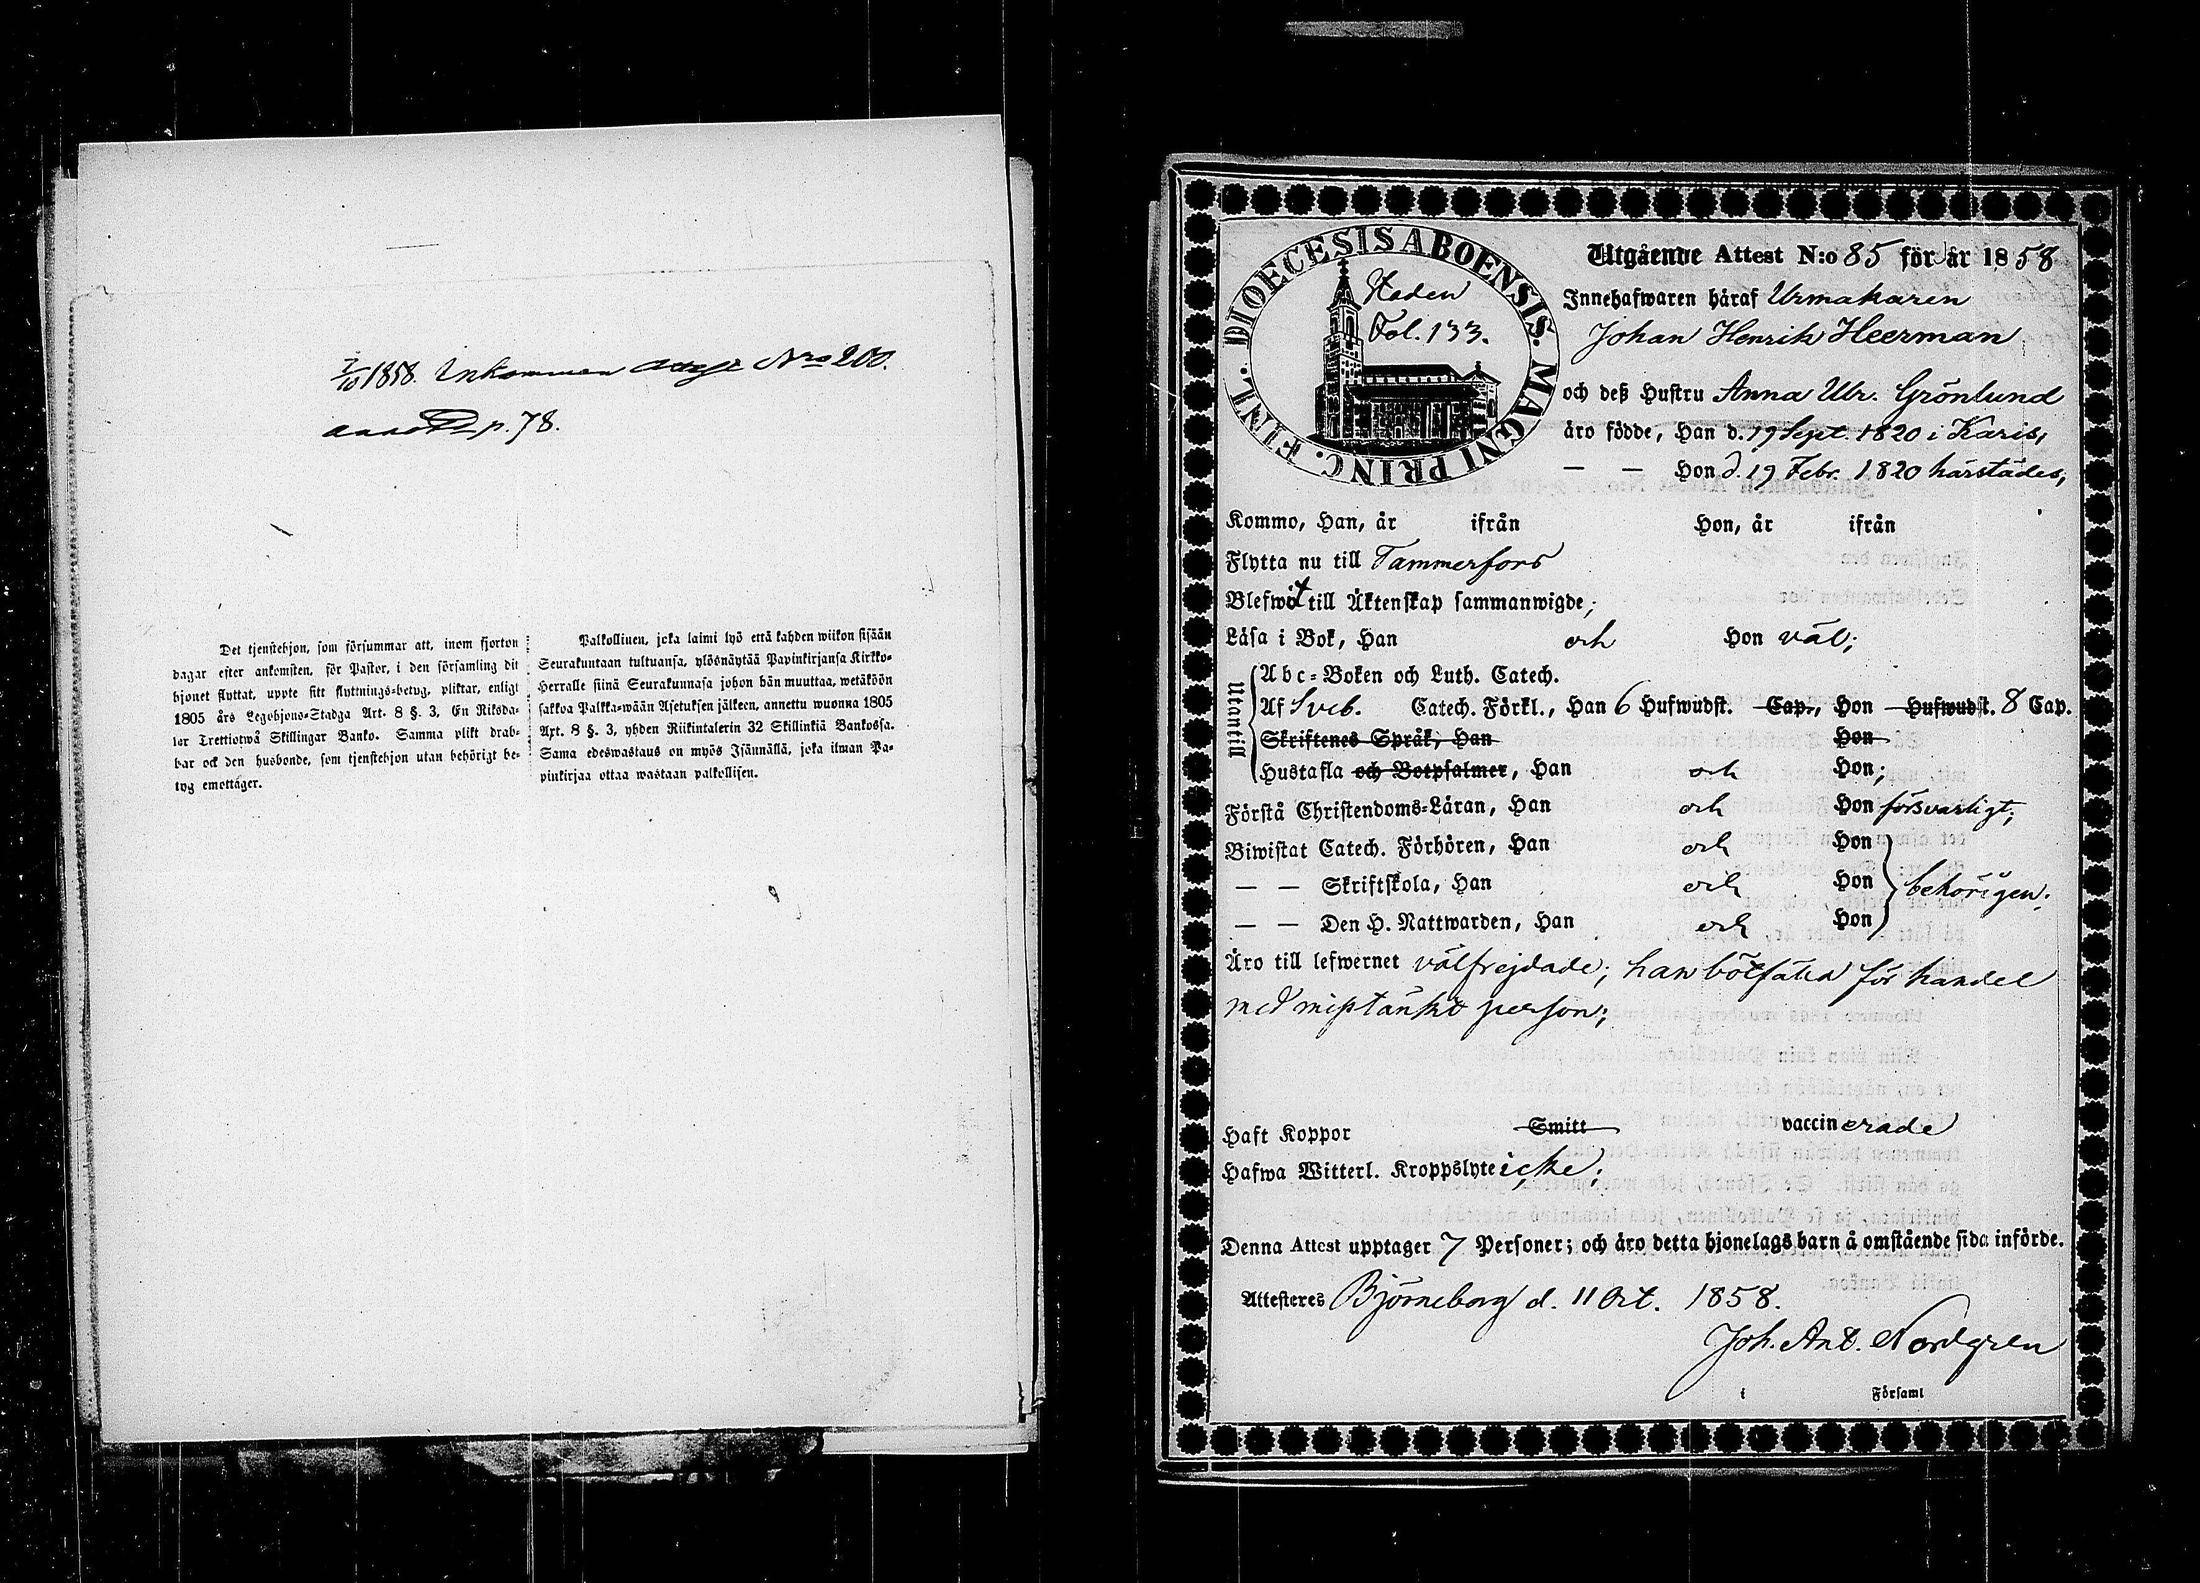 7/10 1858. Inkommen attest Nro 200.
p. 78.
Det tjenstehjon, som försummar att, inom fjorton
dagar efter ankomsten, för Pastor, i den församling dit
hjonet flyttat, uppte sitt flyttnings=betyg, pliktar, enligt
1805 års Legohjons=Stadga Art. 8 §. 3, En Riksda-
ler Trettiotwå Skillingar Banko. Samma plikt drab-
bar ock den husbonde, som tjenstehjon utan behörigt be-
tyg emottager.
Palkollinen, joka laimi lyö että kahden wiikon sisään
Seurakuntaan tultuansa, ylösnäytää Papinkirjansa Kirkko-
Herralle siinä Seurakunnasa johon hän muuttaa, wetäköön
sakkoa Palkka=wään Asetuksen jälkeen, annettu wuonna 1805
Art. 8 §. 3, yhden Riikintalerin 32 Skillinkiä Bankossa.
Sama edeswastaus on myös Isännällä, joka ilman Pa-
pinkirjaa ottaa wastaan palkollisen.
DIOECESIS ABOENSIS. MAGNI PRINC. FINL.
Staden
Fol. 133.
Utgående Attest N:o 85 för år 1858
Innehafwaren häraf Urmakaren
Johan Henrik Heerman
och deß Hustru Anna Ulr. Grönlund
äro födde, Han d. 19 Sept. 1820 i Karis,
— — Hon d. 19 Febr. 1820 härstädes,
Kommo, Han, år ifrån Hon, år ifrån
Flytta nu till Tammerfors
Blefwit till Äktenskap sammanwigde;
Läsa i Bok, Han och Hon väl;
Utantill
Abc=Boken och Luth. Catech.
Af Sveb. Catech. Förkl., Han 6 Hufwudst. Cap., Hon Hufwudst. 8 Cap.
Skriftenes Språk, Han Hon
Hustafla och Botpsalmer, Han och Hon;
Förstå Christendoms=Läran, Han och Hon försvarligt;
Biwistat Catech. Förhören, Han och Hon
— — Skriftskola, Han och Hon behörigen;
— — Den H. Nattwarden, Han och Hon
Äro till lefwernet välfrejdade; han bötfälld för handel
med misstänkt person;
Haft Koppor Smitt vaccinerade
Hafwa Witterl. Kroppslyte icke;
Denna Attest upptager 7 Personer; och äro detta hjonelags barn å omstående sida införde.
Attesteres Björneborg d. 11 Oct. 1858.
Joh. Ant. Nordgren
i Församl